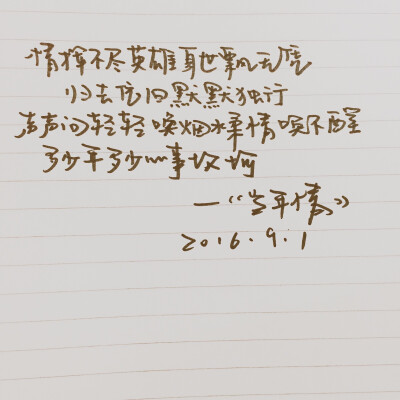 情挥不尽英雄身世飘无凭
归去依旧默默独行
声声问轻轻唤烟水柔情唤不醒
多少年多少心事成
—《当年情》
2016.9.1